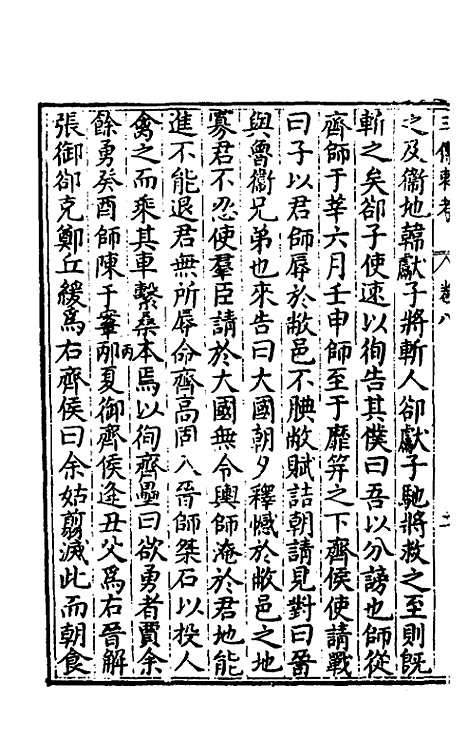 三傳辨考 卷八
之及衞地韓獻子將斬人卻獻子馳將救之至則旣
斬之矣卻子使速以徇告其僕曰吾以分謗也師從
齊師于莘六月壬申師至于靡笄之下齊侯使請戰
曰子以君師辱於敝邑不腆敝賦詰朝請見對曰晉
與魯衞兄弟也來告曰大國朝夕釋憾於敝邑之地
寡君不忍使羣臣請於大國無令輿師淹於君地能
進不能退君無所辱命齊高固入晉師桀石以投人
禽之而乘其車繫桑本焉以徇齊壘曰欲勇者賈余
餘勇癸酉師陳于鞌邴夏御齊侯逢丑父爲右晉解
張御卻克鄭丘緩爲右齊侯曰余姑翦滅此而朝食